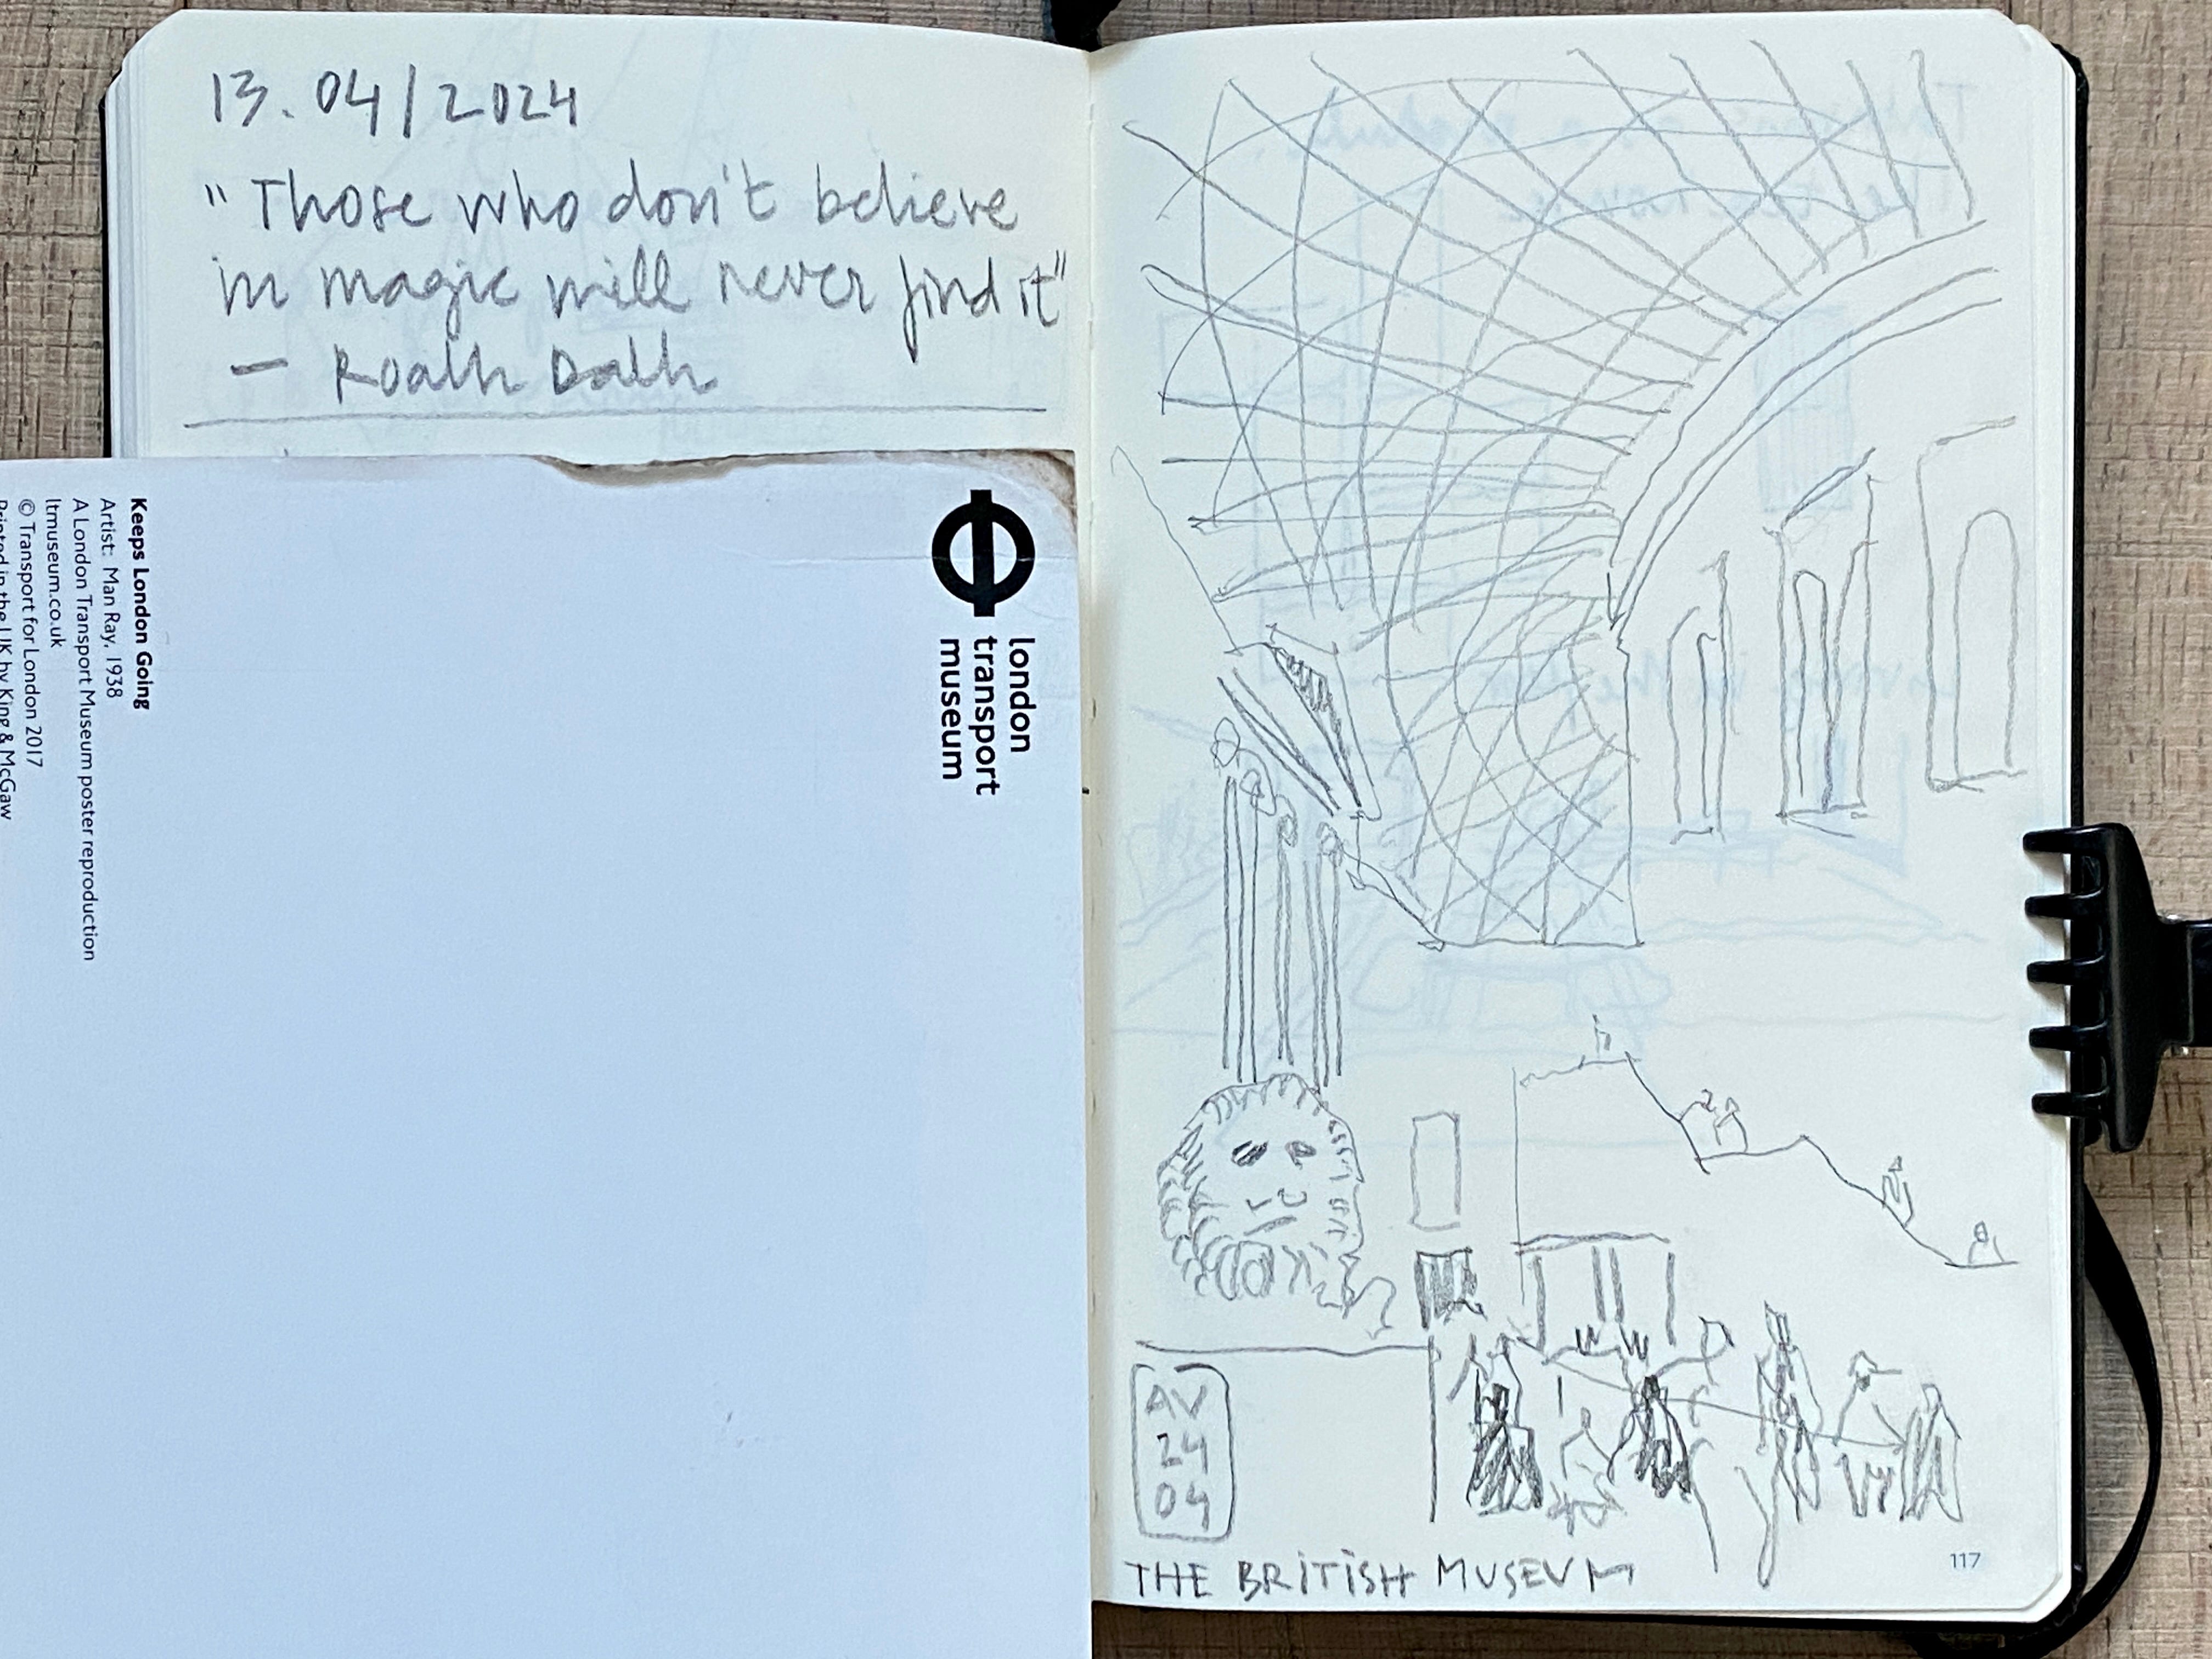 13.04/2024
"Those who don't believe
in magic will never find it"
— Roalh Dalh
london
transport
museum
Keeps London Going
Artist: Man Ray, 1938
A London Transport Museum poster reproduction
ltmuseum.co.uk
© Transport for London 2017
Printed in the UK by King & McGaw
AV
24
04
THE BRITISH MUSEUM
117